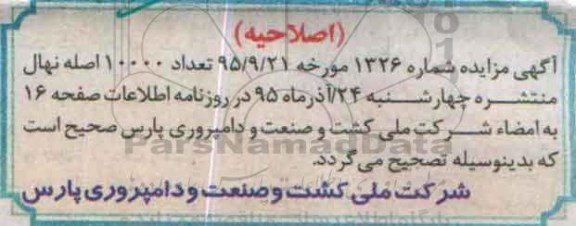 (اصلاحیه)
آگهی مزایده شماره ۱۳۲۶ مورخه ۹۵/۹/۲۱ تعداد ۱۰۰۰۰ اصله نهال
منتشــره چهارشــنبه ۲۴/آذرماه ۹۵ در روزنامه اطلاعات صفحه ۱۶
به امضاء شــرکت ملی کشت و صنعت و دامپروری پارس صحیح است
که بدینوسیله تصحیح می گردد.
شرکت ملی کشت وصنعت ودامپروری پارس
ParsNamadData